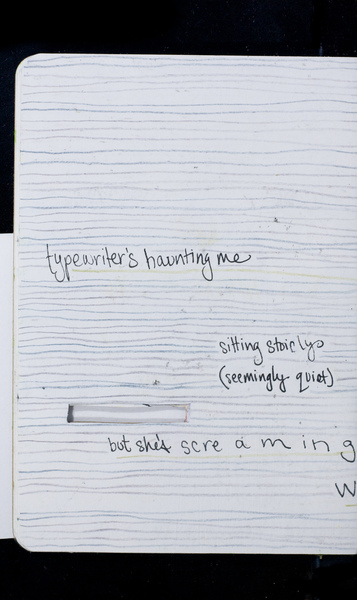 typewriter's haunting me
sitting stoicly
(seemingly quiet)
but she's screaming
W